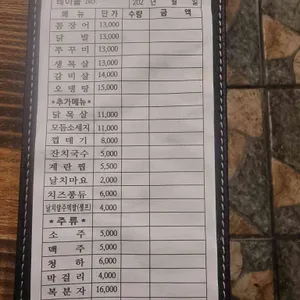 테이블 NO 202 년 월 일
메 뉴 단가 수량 금 액
통장어 13,000
닭 발 13,000
쭈꾸미 13,000
생목살 13,000
갈비살 14,000
오땡탕 15,000
*추가메뉴*
닭목살 11,000
모듬소세지 11,000
껍데기 8,000
잔치국수 5,000
계란찜 5,500
날치마요 2,000
치즈퐁듀 6,000
날치알주먹밥(셀프) 4,000
* 주류 *
소 주 5,000
맥 주 5,000
청 하 6,000
막걸리 4,000
복분자 16,000